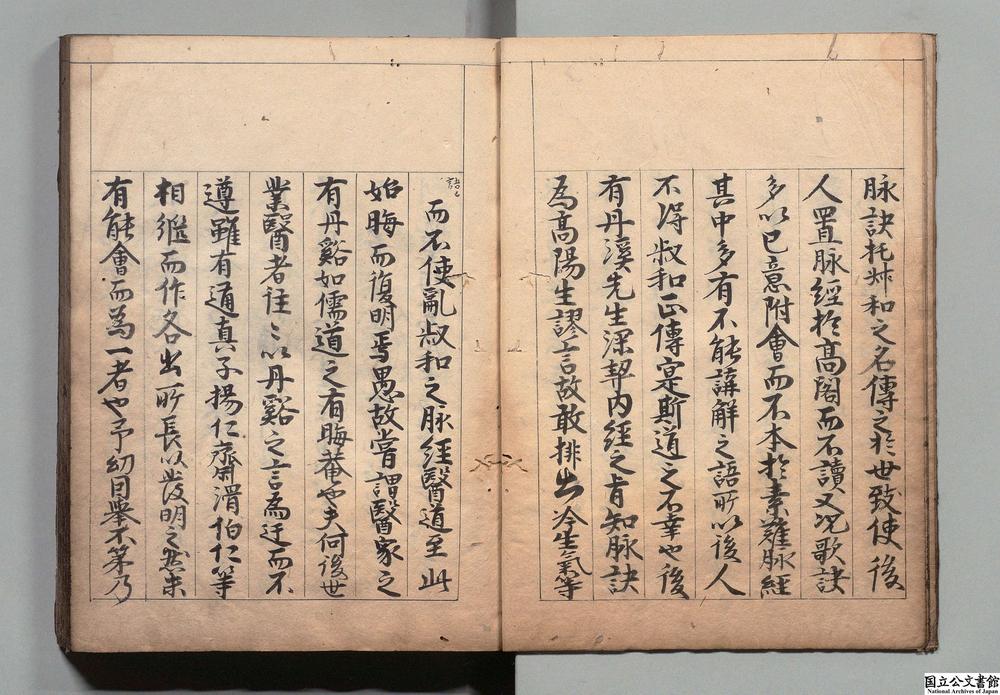 脉訣托叔和之名傳之於世致使後
人置脉經於髙閣而不讀又况歌訣
多以已意附會而不本於素難脉經
其中多有不能講解之語所以後人
不得叔和正傳寔斯道之不幸也後
有丹溪先生深契内經之旨知脉訣
為髙陽生謬言故敢排出冷生氣等
語
而不使亂叔和之脉經醫道至此
始晦而復明焉愚故嘗謂醫家之
有丹谿如儒道之有晦菴也夫何後世
業醫者往〻以丹谿之言為迂而不
遵雖有通真子揚仁齋滑伯仁等
相繼而作各出所長以發明之然未
有能會而為一者也予幼因舉不第乃
国立公文書館
National Archives of Japan